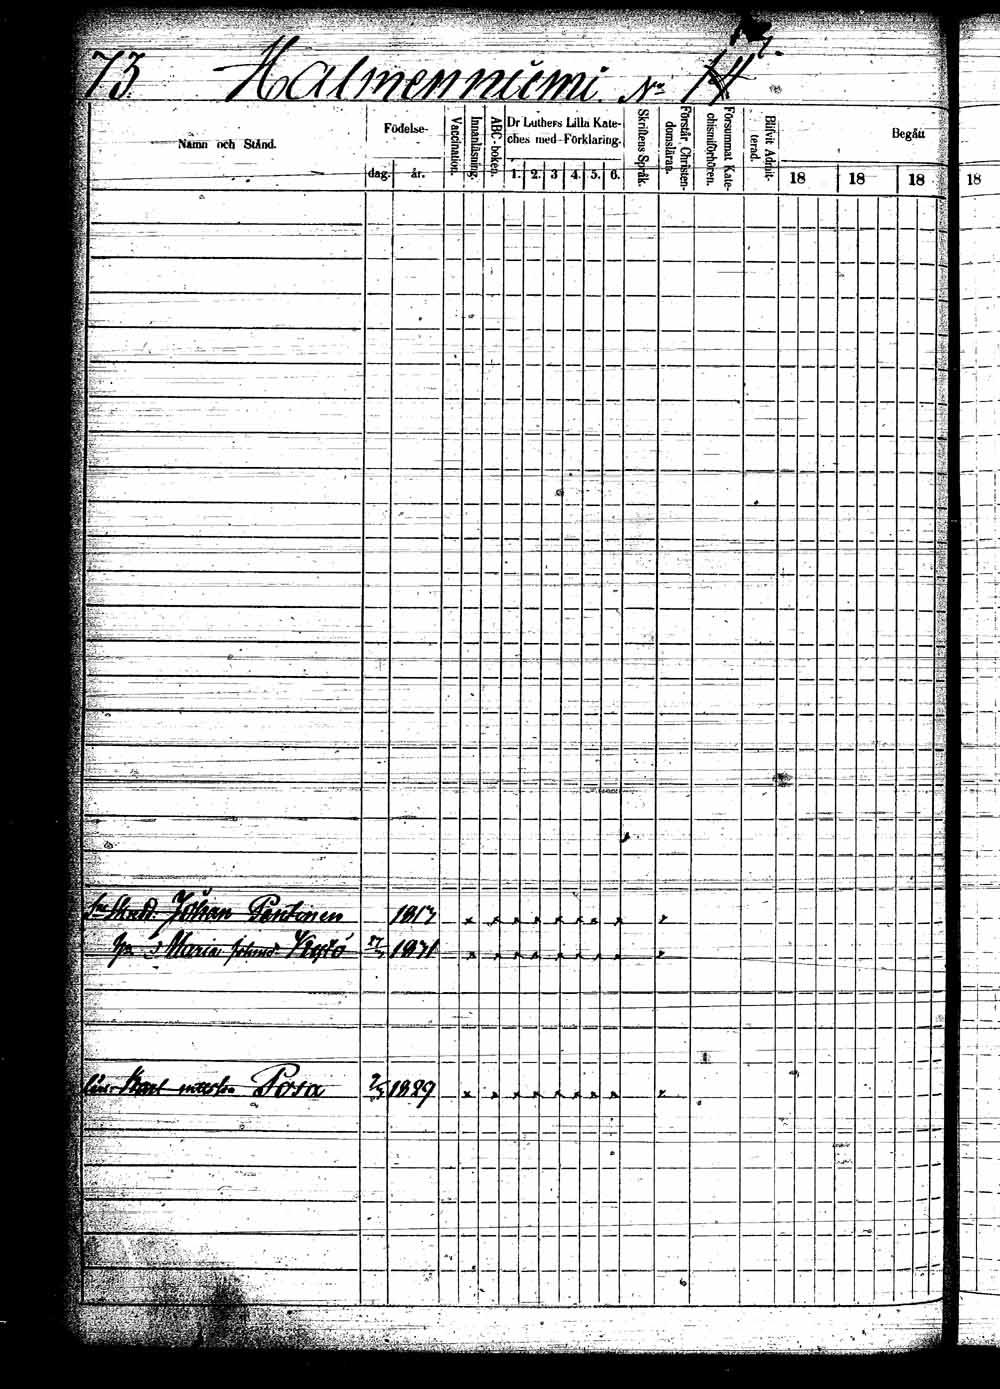 73 Halmenniemi. No
Namn och Stånd.
Födelse-
dag. år.
Vaccination.
Innanläsning.
ABC-boken.
Dr Luthers Lilla Kate-
ches med Förklaring.
1. 2. 3 4. 5. 6.
Skriftens Språk.
Förstår Christen-
domsläran.
Försummat Kate-
chismiförhören.
Blifvit Admit-
terad.
Begått
18 18 18 18
Johan Pentinen 1817
Maria 1831
Karl Posa 1829